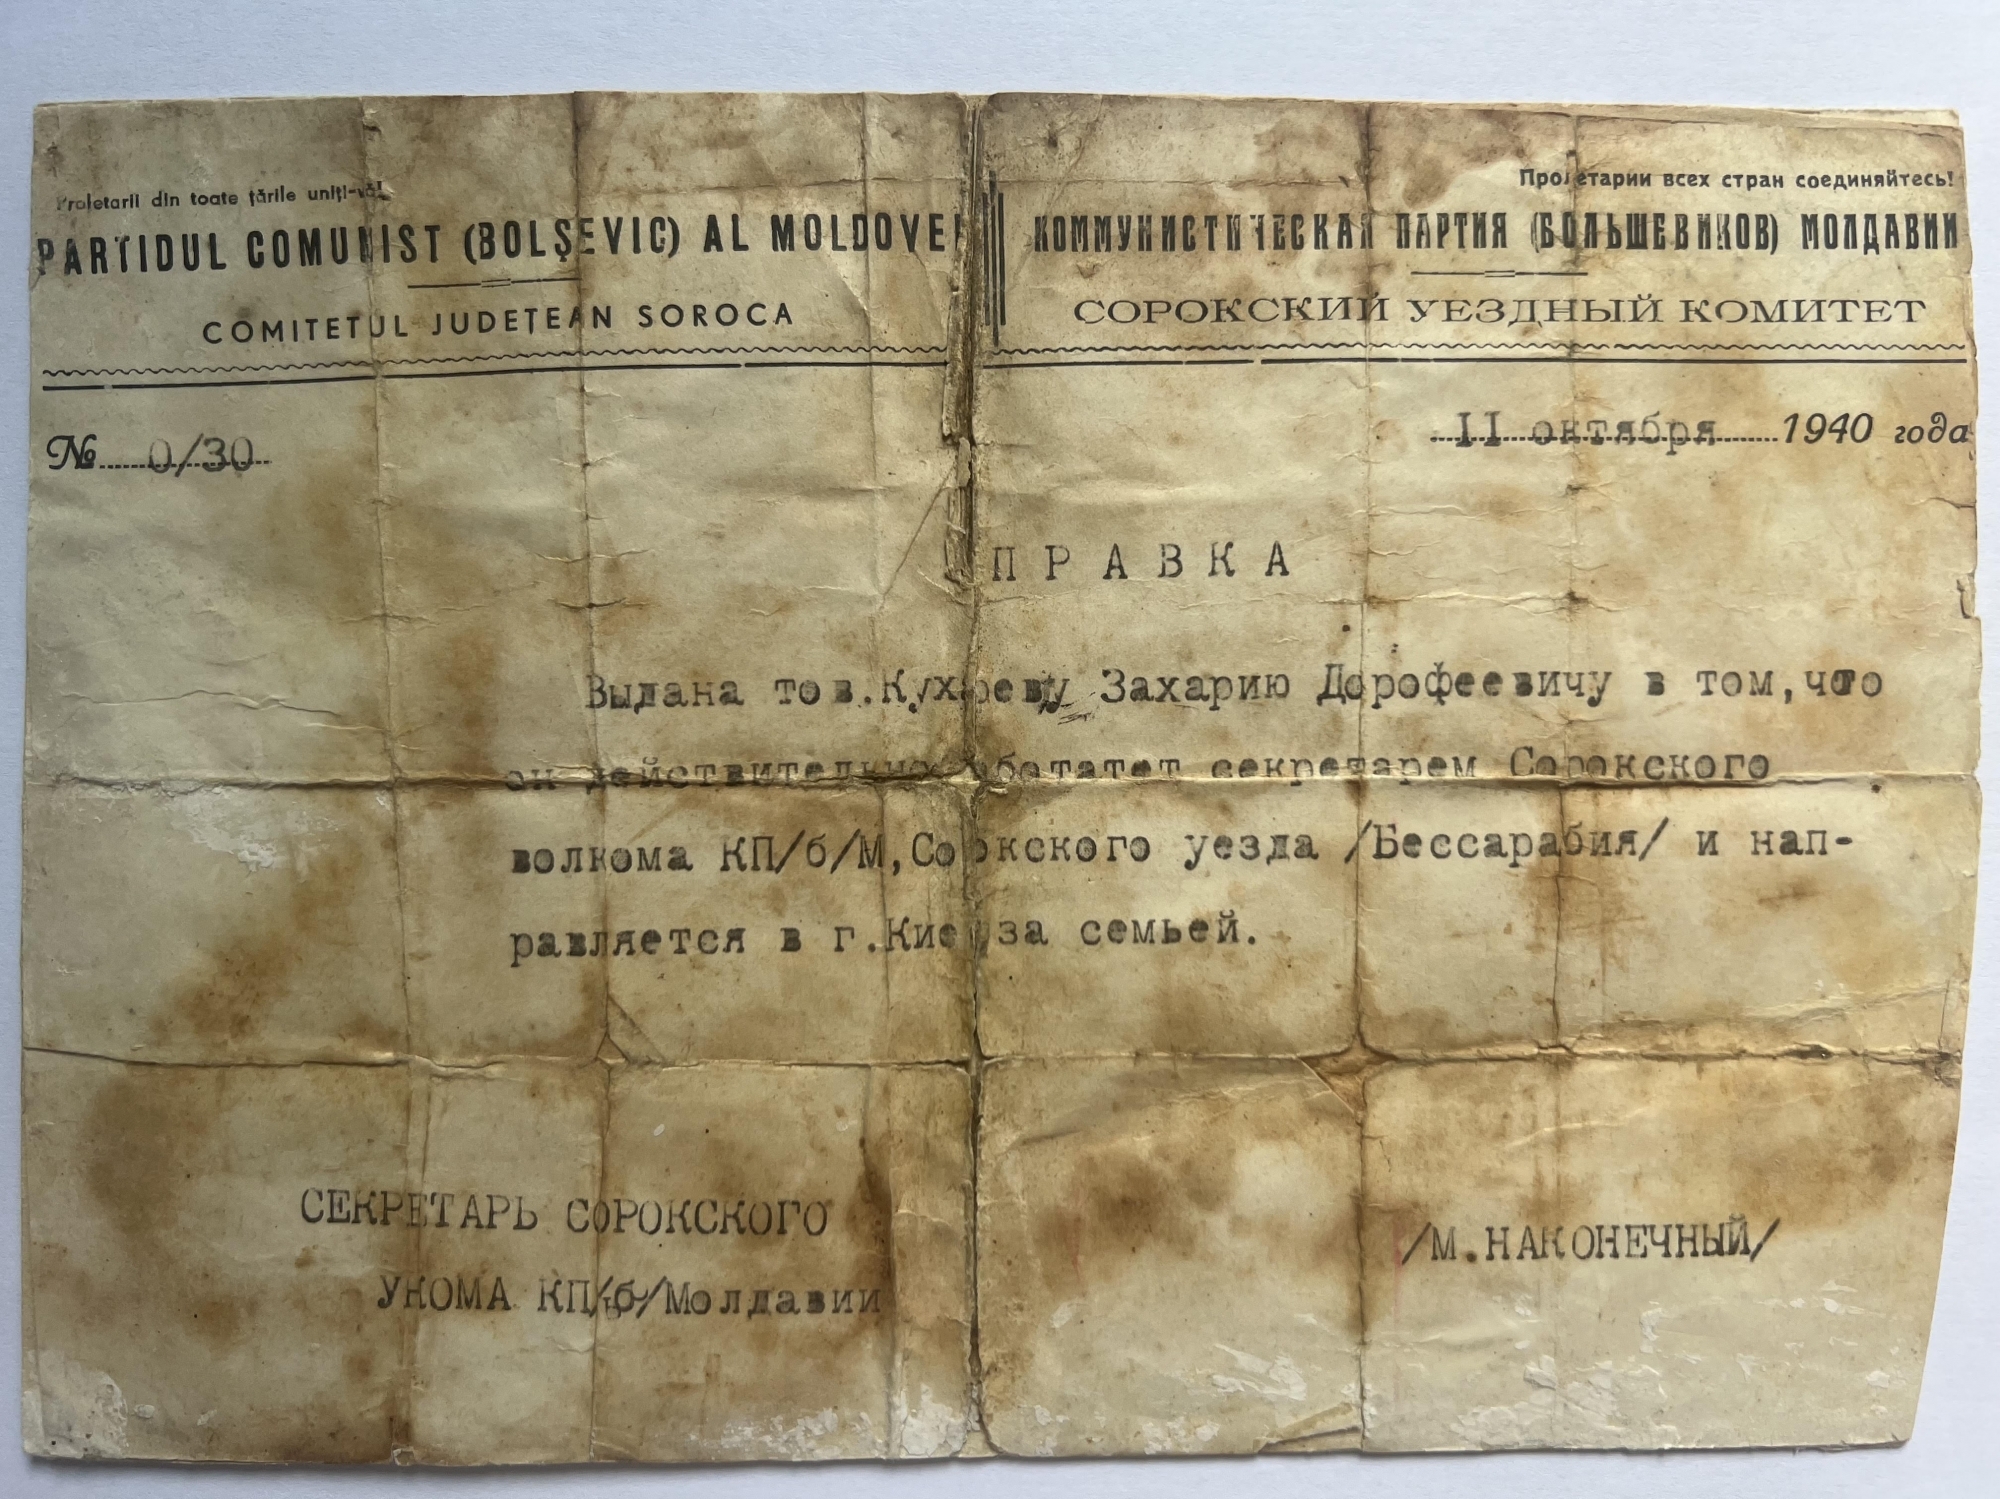 Proletarii din toate țările uniți-vă!
PARTIDUL COMUNIST (BOLȘEVIC) AL MOLDOVEI
COMITETUL JUDEȚEAN SOROCA
Пролетарии всех стран соединяйтесь!
КОММУНИСТИЧЕСКАЯ ПАРТИЯ (БОЛЬШЕВИКОВ) МОЛДАВИИ
СОРОКСКИЙ УЕЗДНЫЙ КОМИТЕТ
№ 0/30
II октября 1940 года
СПРАВКА
Выдана тов. Кухареву Захарию Дорофеевичу в том, что
он действительно работатет секретарем Сорокского
волкома КП/б/М, Сорокского уезда /Бессарабия/ и нап-
равляется в г. Киев за семьей.
СЕКРЕТАРЬ СОРОКСКОГО
УКОМА КП/б/Молдавии
/М.НАКОНЕЧНЫЙ/